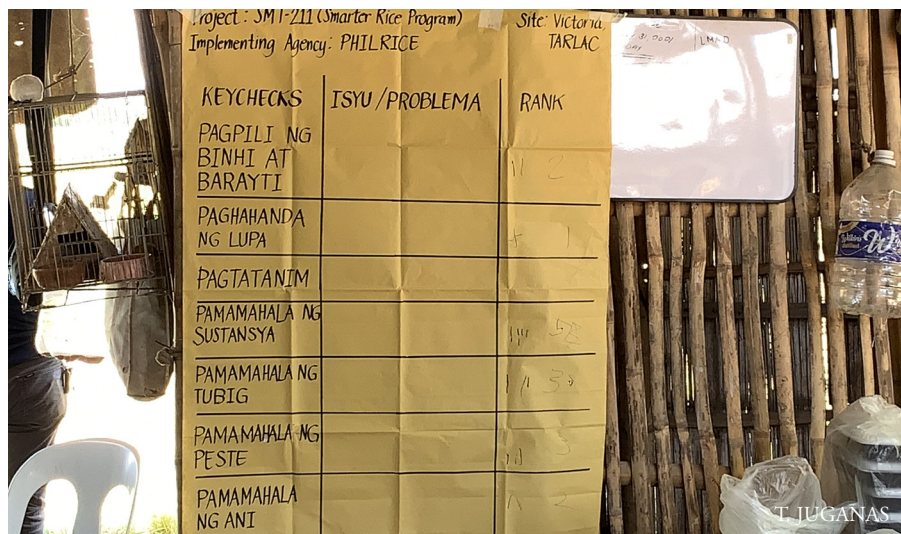 Project: SMT-211 (Smarter Rice Program)
Site: Victoria,
Implementing Agency: PHILRICE
TARLAC
KEYCHECKS
ISYU/PROBLEMA
RANK
PAGPILI NG
BINHI AT
BARAYTI
2
PAGHAHANDA
NG LUPA
1
PAGTATANIM
PAMAMAHALA NG
SUSTANSYA
PAMAMAHALA NG
TUBIG
3
PAMAMAHALA NG
PESTE
3
PAMAMAHALA
NG ANI
2
Wilkins
T. JUGANAS